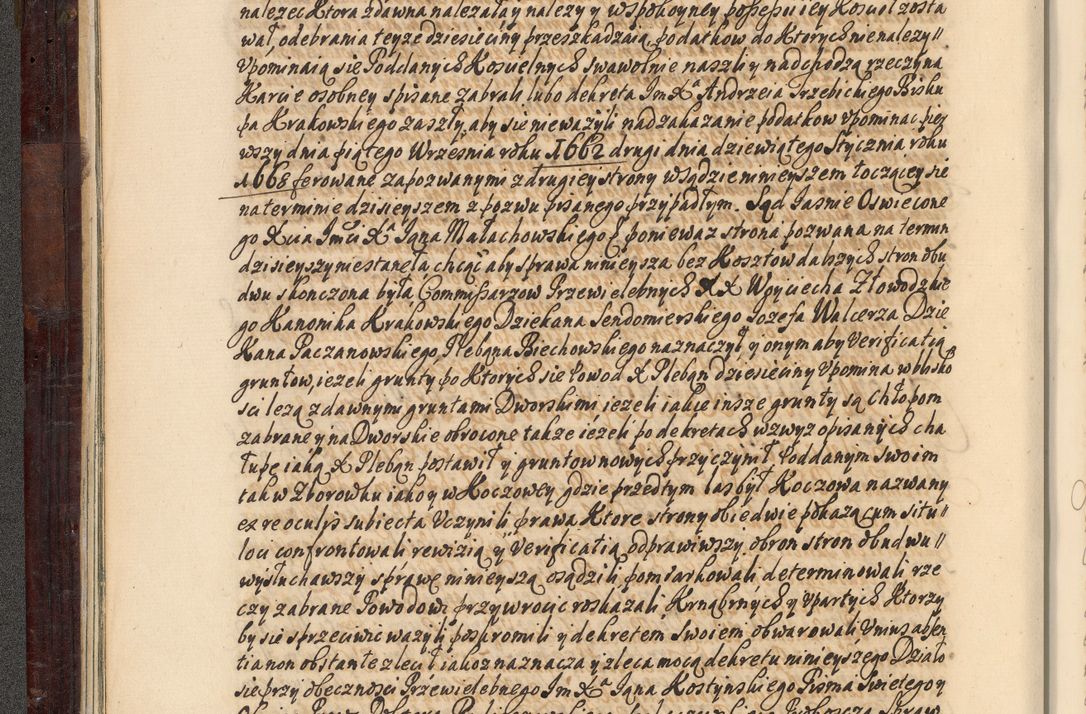 nalezec Ktora zdawna nalezała y nalezy y wspokoyney possessii iey Kosciel zosta
wał, odebrania teyze dziesieciny przeszkadzaią, podatkow do Ktorych nienalezy//
Vpominaią się Poddanych Koscielnych swawolnie naszli y nadchodzą rzeczy na
Karcie osobney spisane zabrali lubo dekreta Im Xa Andrzeia Trzebickiego Bisku
pa Krakowskiego zaszły, aby sie nie wazyli nad zakazanie podatkow vpominac pier
wszy dnia piątego Wrzesnia roku 1662 drugi dnia dziewiątego Stycznia roku
1668 ferowane zapozwanymi z drugiey strony w sądzie ninieyszem toczącey się
na terminie dzisieyszem z pozwu pisanego przypadłym. Sąd Jasnie Oswiecone
go Xcia Imci Xa Jana Małachowskiego E poniewaz strona pozwana na termin
dzisieyszy niestanęła chcąc aby sprawa ninieysza bez Kosztow dalszych stron obu
dwu skonczona była Commissarzow Przewielebnych X X Woyciecha Złowodzkie
go Kanonika Krakowskiego Dziekana Sendomierskiego Jozefa Walcerza Dzie
Kana Paczanowskiego Plebana Biechowskiego naznaczył y onym aby Verificatią
gruntow, iezeli grunty po Ktorych sie Powod X Pleban dziesieciny Vpomina w blisko
sci lezą z dawnymi gruntami Dworskimi iezeli iakie insze grunty są chłopom
zabrane y na Dworskie obrocone takze iezeli po dekretach wzwyz opisanych cha
łupę iaką X Pleban postawił y gruntow nowych przyczynił Poddanym swoim
tak w Zborowku iako y w Koczowey gdzie przedtym las był Koczowa nazwany
ex re oculis subiecta Vczynili prawa Ktore strony obiedwie pokazą cum situ//
loci confrontowali rewizią y Verificatią odprawiwszy obron stron obudwu//
wysłuchawszy sprawę ninieyszą osądzili pomiarkowali determinowali rze
czy zabrane Powodowi przywrocic roskazali Krnąbrnych y Vpartych Ktorzy
by sie sprzeciwic wazyli poskromili y dekretem swoiem obwarowali Vnius absen
tia non obstante zlecił iakoz naznacza y zleca mocą dekretu ninieyszego Działo
się przy obecznosci Przewielebnego Im Xa Jana Kostynskiego Pisma Swietego y